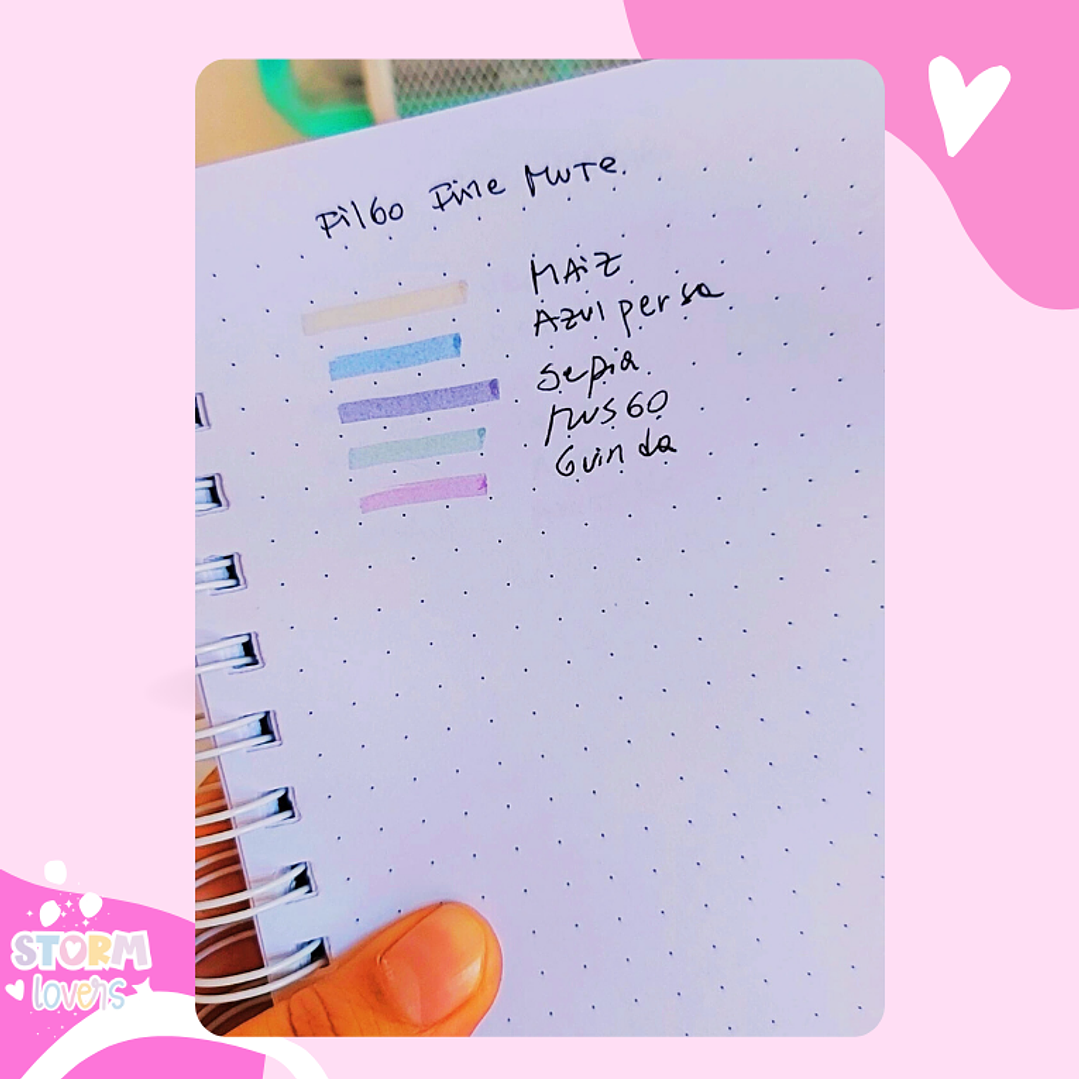 Filgo Fine Mute.
MAiZ
Azul persa
Sepia.
MUSGO
Guinda
STORM
lovers